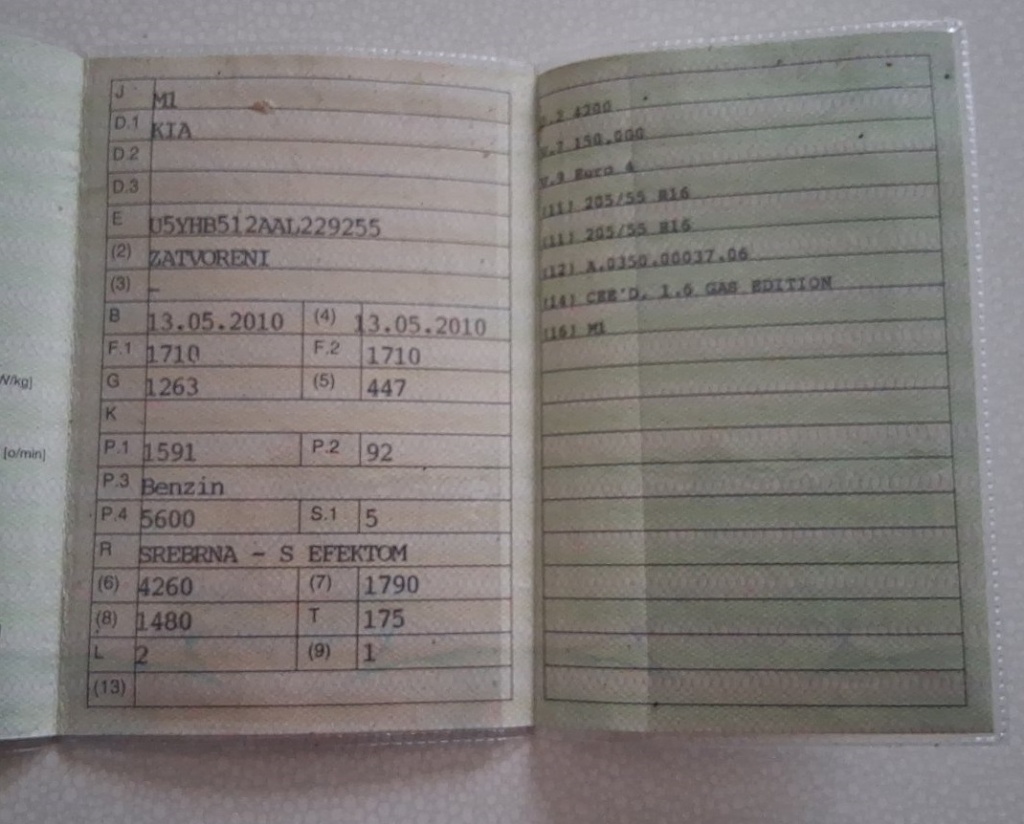 W/kg]
[o/min]
J M1
D.1 KIA
D.2
D.3
E U5YHB512AAL229255
(2) ZATVORENI
(3) –
B 13.05.2010 (4) 13.05.2010
F.1 1710 F.2 1710
G 1263 (5) 447
K
P.1 1591 P.2 92
P.3 Benzin
P.4 5600 S.1 5
R SREBRNA - S EFEKTOM
(6) 4260 (7) 1790
(8) 1480 T 175
L 2 (9) 1
(13)
4200
V.7 150.000
V.9 Euro 4
(11) 205/55 R16
(11) 205/55 R16
(12) A.0350.00037.06
(14) CEE'D, 1.6 GAS EDITION
(16) M1